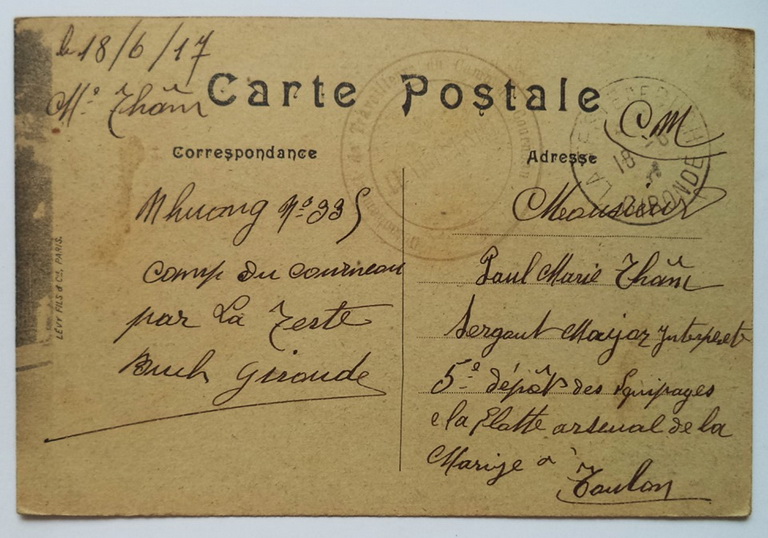 le 18/6/17
Mr Thâm
Carte Postale
CM
Correspondance
Adresse
Nhuong No 335
camp du courneau
par La Teste
Buch Gironde
Monsieur
Paul Marie Thâm
Sergent Major Interprete
5e dépôt des Equipages
de la Flotte arsenal de la
Marine à
Toulon
LA TESTE DE BUCH
18 - 6
GIRONDE
LÉVY FILS & Cie, PARIS.